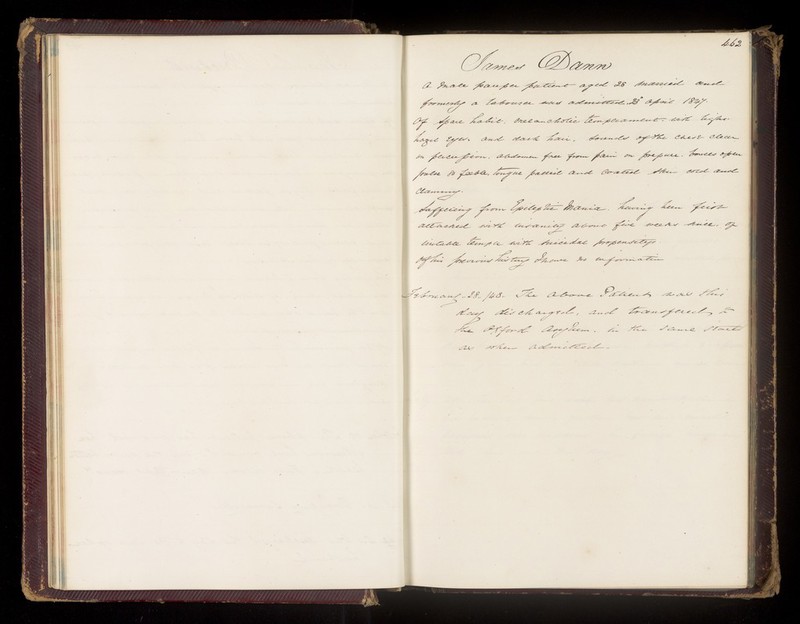 442
James Dann
A Male pauper patient aged 28 married and
formerly a labourer was admitted 28 April 1847
Of spare habit, melancholic temperament with light
hazel eyes and dark hair, sounds of the chest clear
on percussion, abdomen free from pain on pressure. bowels open
pulse feeble, tongue pallid and coated skin cold and
clammy.
Suffering from Epileptic Mania. having been first
attacked with insanity about five weeks since of
irritable temper with suicidal propensity
Of his previous history I have no information
February 28. /48. The above Patient, was this
day discharged, and transferred to
the Oxford Asylum, in the same state
as when admitted.